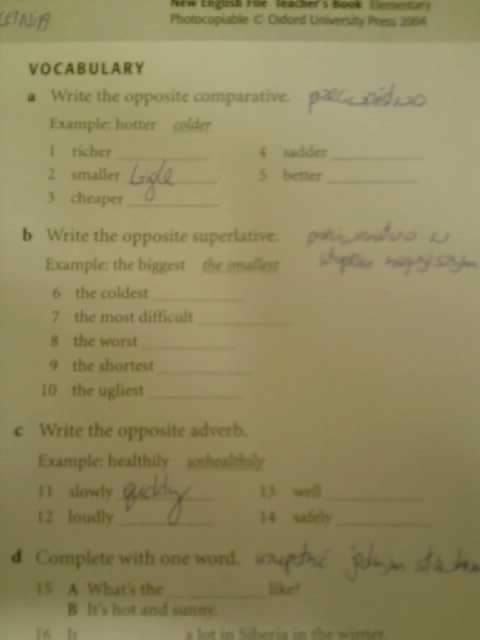 New English File Teacher's Book Elementary
Photocopiable © Oxford University Press 2004
VOCABULARY
a Write the opposite comparative.
Example: hotter colder
1 richer
4 sadder
2 smaller
5 better
3 cheaper
b Write the opposite superlative.
Example: the biggest the smallest
6 the coldest
7 the most difficult
8 the worst
9 the shortest
10 the ugliest
c Write the opposite adverb.
Example: healthily unhealthily
11 slowly
13 well
12 loudly
14 safely
d Complete with one word.
15 A What's the like?
B It's hot and sunny.
16 It a lot in Siberia in the winter.